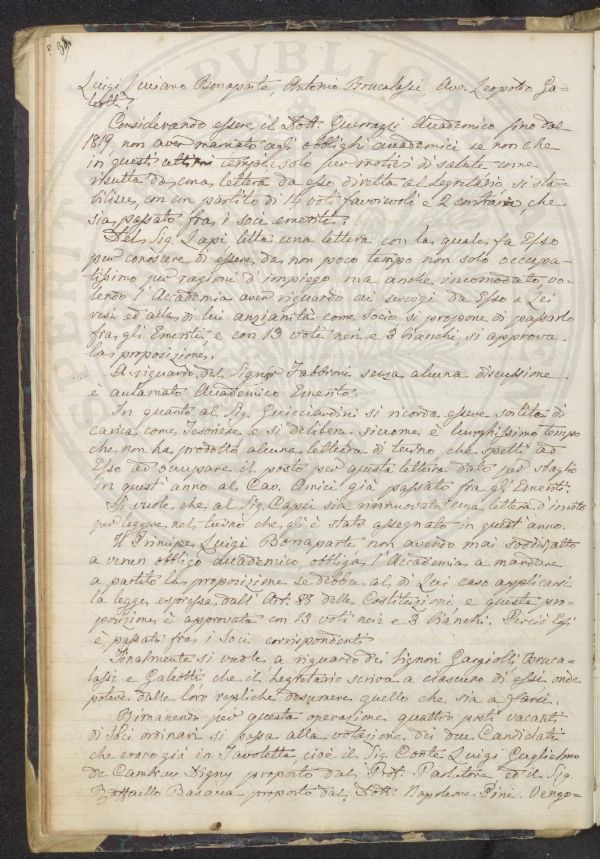 Luigi Luciano Bonaparte Antonio Brucalassi, Avv. Leopoldo Ga=
leotti.
Considerando essere il Dott: Guerrazzi Accademico fino dal
1819, non aver mancato agli obblighi accademici se non che
in questi ultimi tempi, solo per motivi di salute come
risulta da una lettera da esso diretta al Segretario, si sta=
bilisce, con un partito di 14 voti favorevoli e 2 contrari, che
sia passato fra i soci emeriti.
Del Sig. Lapi, letta una lettera con la quale fa Esso
pur conoscere di essere da non poco tempo non solo occupa=
tissimo per ragioni d'impiego ma anche incomodato, vo=
lendo l'Accademia aver riguardo ai servigi da Esso a Lei
resi ed alla di lui anzianità come socio si propone di passarlo
fra gli Emeriti, e con 13 voti neri e 3 bianchi si approva
la proposizione.
A riguardo del Signor Fabbroni senza alcuna discussione
è aclamato Accademico Emerito.
In quanto al Sig. Guicciardini si ricorda essere sortito di
carica come Tesoriere e si delibera siccome è lunghissimo tempo
che non ha prodotto alcuna lettura di turno che spetti ad
Esso ad occupare il posto per questa lettura dato per sbaglio
in quest'anno al Cav. Amici già passato fra gli Emeriti.
Si vuole che al Sig. Capei sia rinnuovata una lettera d'invito
per leggere nel turno che gli è stato assegnato in quest'anno.
Il Principe Luigi Bonaparte non avendo mai soddisfatto
a verun obbligo accademico obbliga l'Accademia a mandare
a partito la proposizione se debba al di Lui caso applicarsi
la legge espressa dall'Art. 83 delle Costituzioni e questa pro=
posizione è approvata con 13 voti neri e 3 bianchi. Perciò Egli
è passato fra i Soci corrispondenti
Finalmente si vuole a riguardo dei Signori Gargiolli Bruca=
lassi e Galeotti che il Segretario scriva a ciascuno di essi onde
potere dalle loro repliche desumere quello che sia a farsi.
Rimanendo per questa operazione quattro posti vacanti
di Soci ordinari si passa alla votazione dei due Candidati
che erano già in Tavoletta cioè il Sig. Conte Luigi Guglielmo
de Cambray Digny proposto dal Prof. Parlatore ed il Sig.
Raffaello Busacca proposto dal Dott. Napoleone Pini. Vengo=